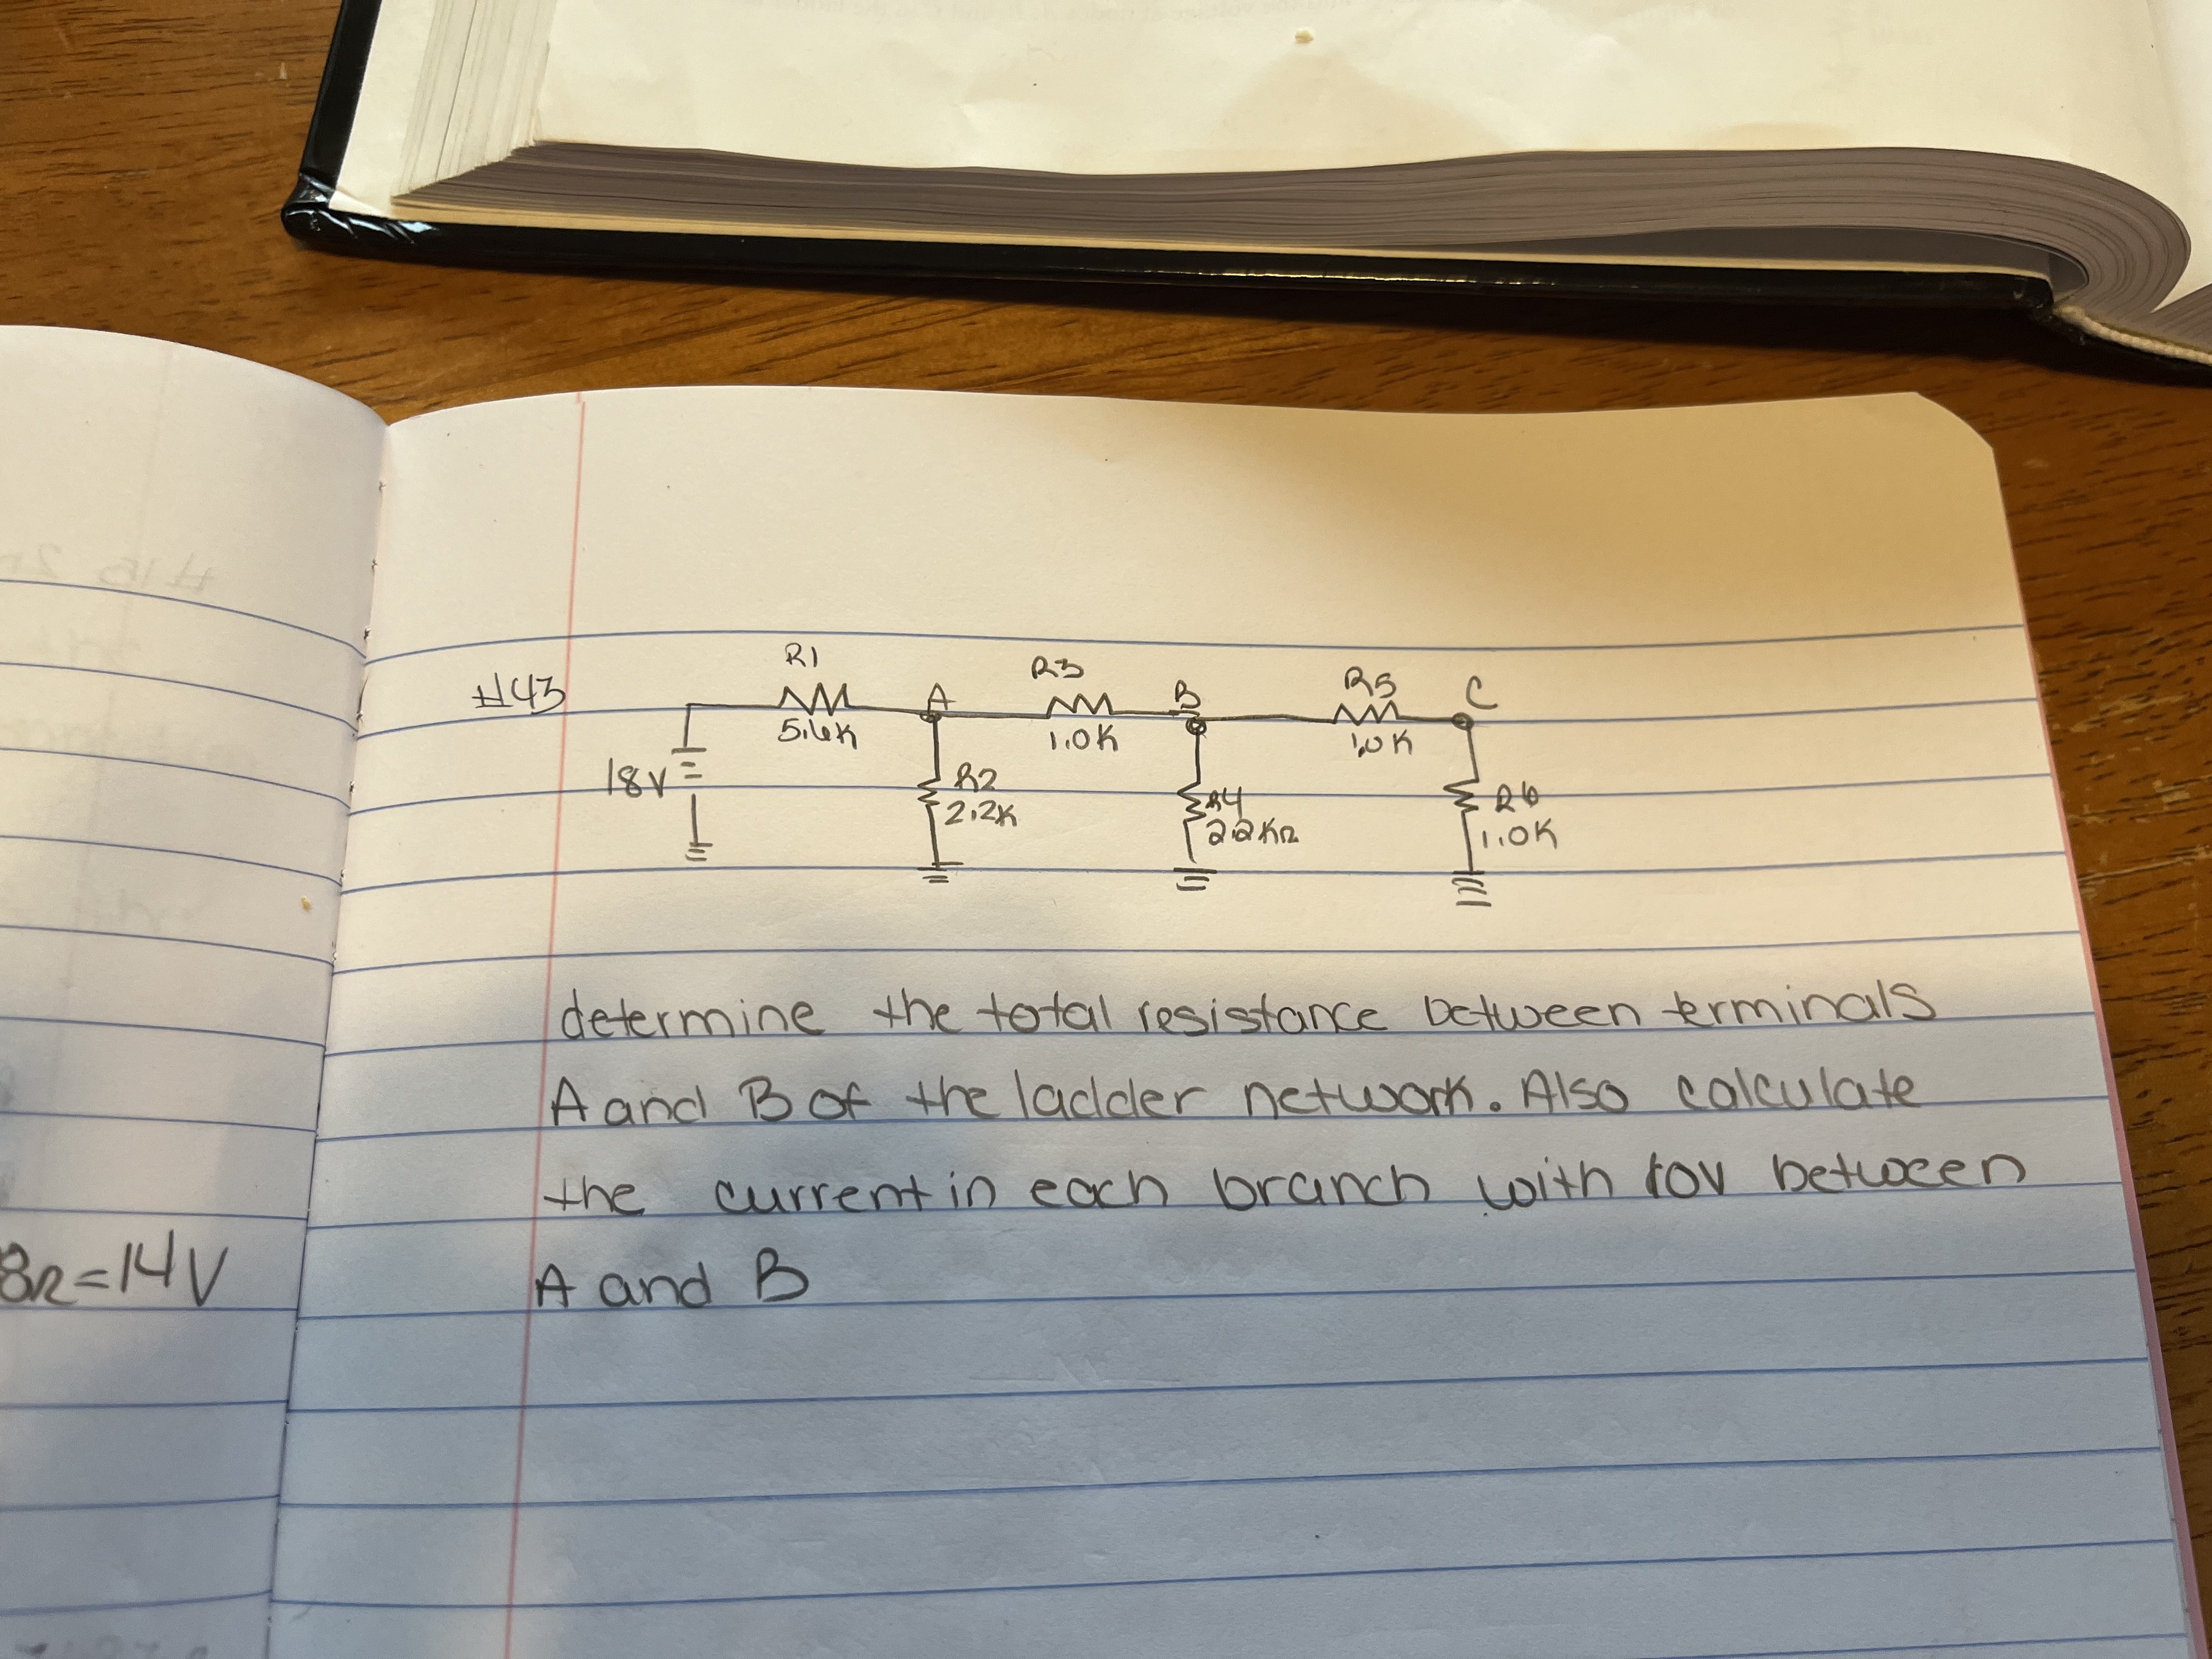 #43
R1
5.6K
A
R3
1.0K
B
R5
1.0K
C
18V
R2
2.2K
R4
2.2KΩ
R6
1.0K
determine the total resistance between terminals
A and B of the ladder network. Also calculate
the current in each branch with 10V between
A and B
8Ω=14V